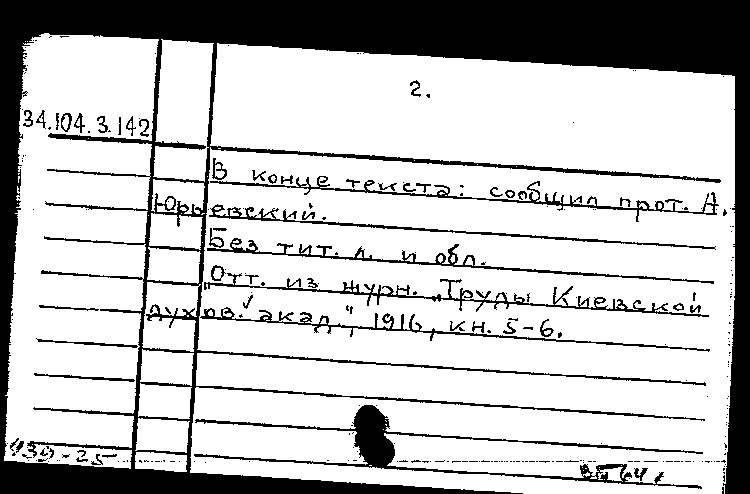 2.
34.104.3.142
В конце текста: сообщил прот. А.
Юрьевский.
Без тит. л. и обл.
„Отт. из журн. „Труды Киевской
духов. акад.", 1916, кн. 5-6.
439-25